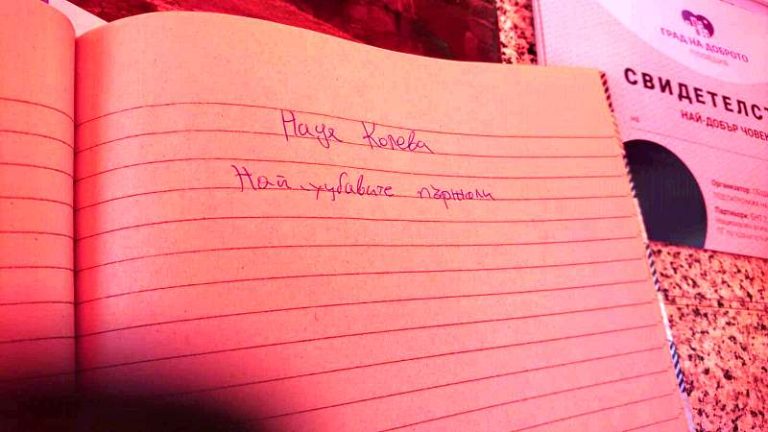 Надя Колева
Най хубавите пържоли
ГРАД НА ДОБРОТО
СВИДЕТЕЛСТ
НАЙ-ДОБЪР ЧОВЕК
Организатор:
Партньори: